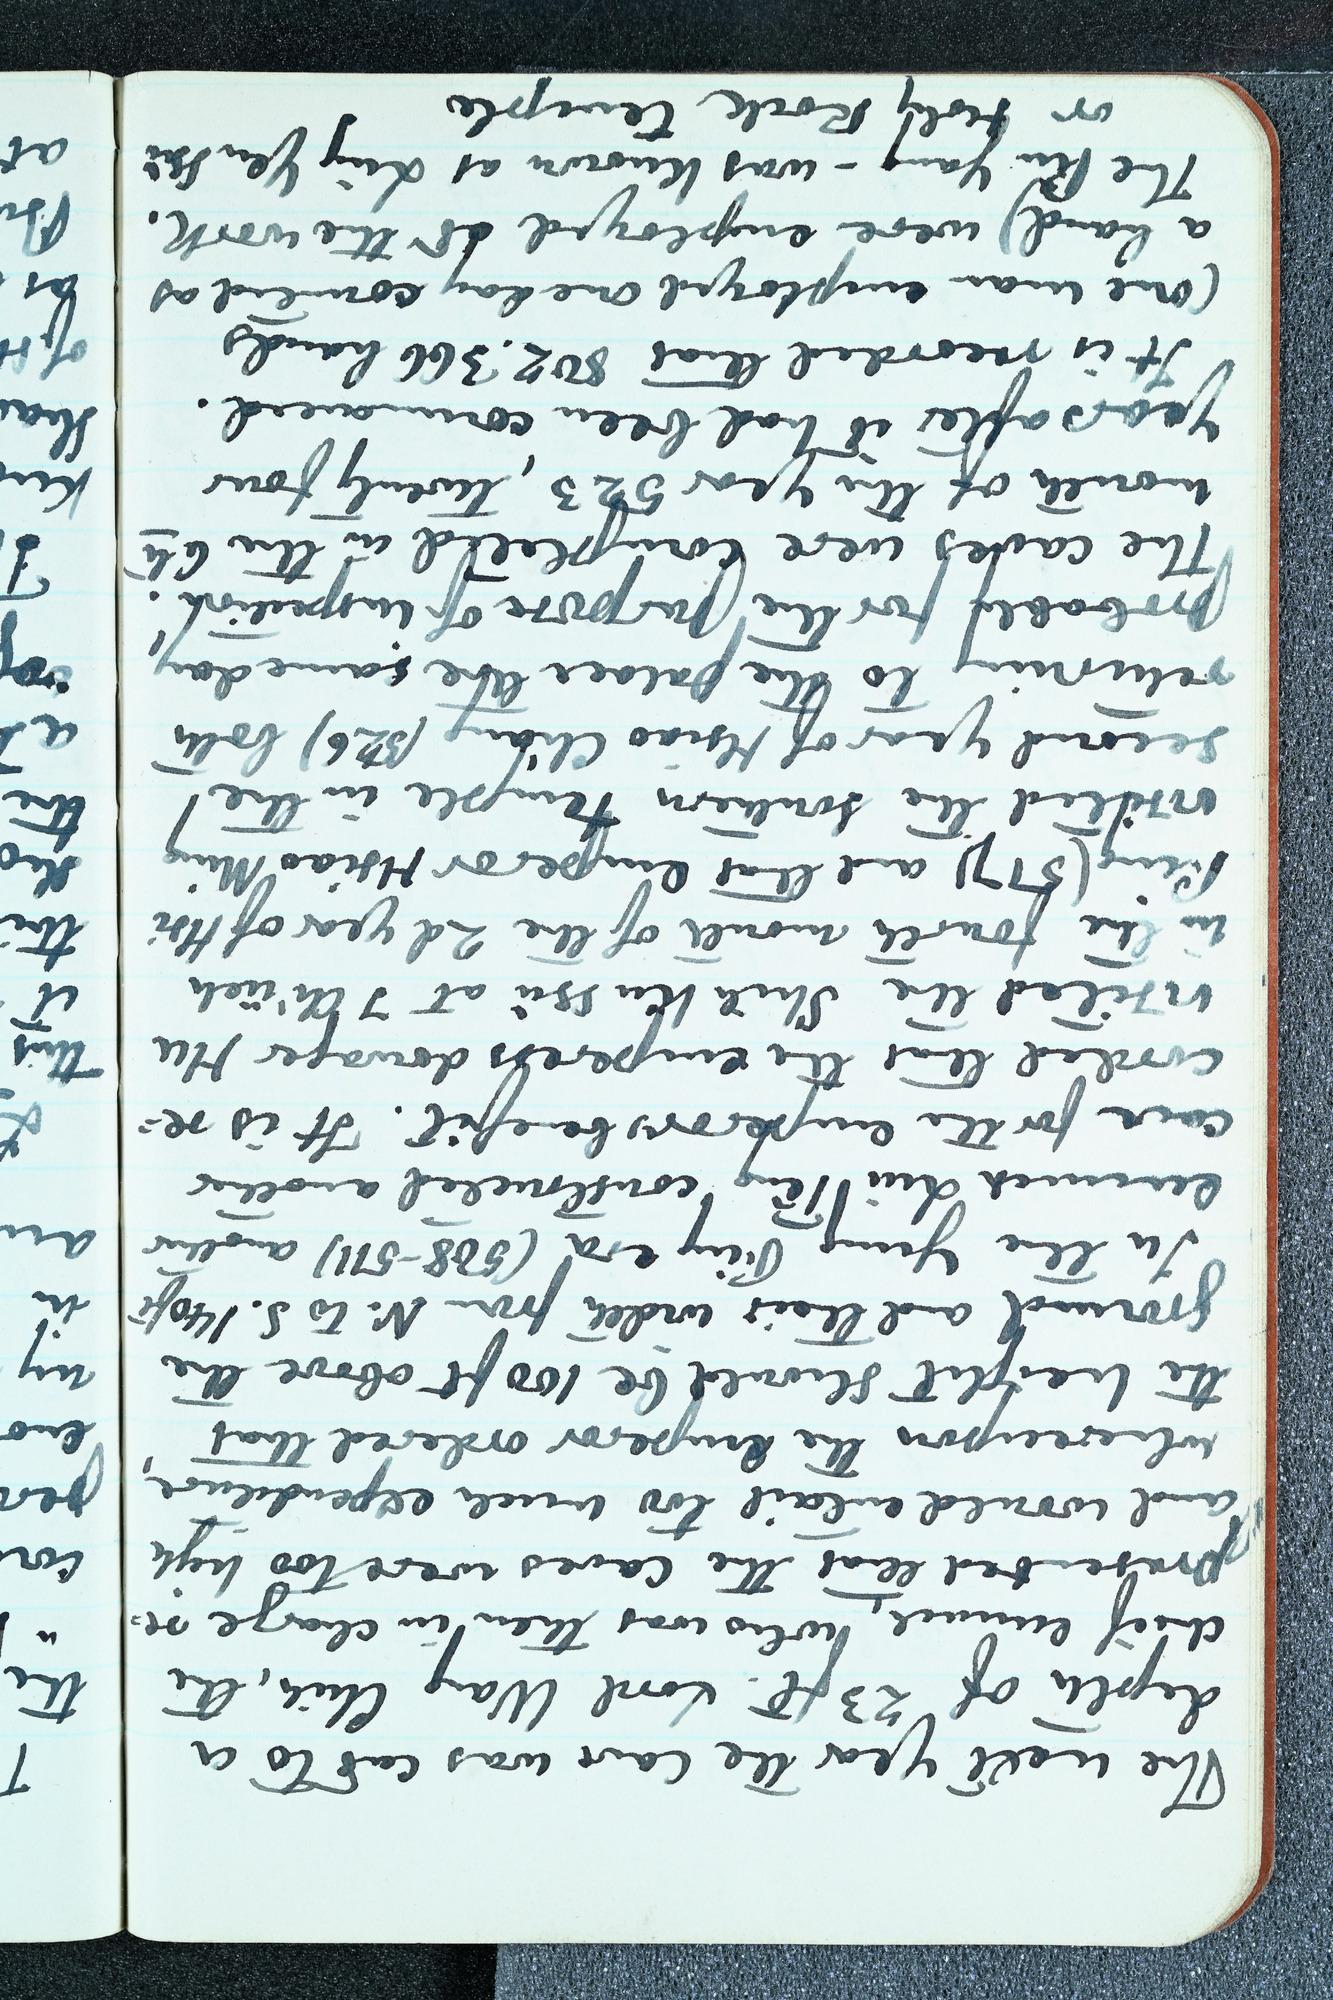 The next year the cave was cut to a
depth of 23 ft. Lord Wang Chih, the
chief eunuch, who was then in charge re-
presented that the caves were too high
and would entail too much expendience,
whereupon the Emperor ordered that
the height should be 100 ft above the
ground and their width from N. to S. 140 ft
In the Yung Ping era (508-511) another
eunuch Liu Teng constructed another
cave for the emperors benefit. It is re-
corded that the empress dowager Hu
visited the Shih Ku ssü at I Ch'üeh
in the fourth month of the 2d year of Hsi
Ping (517) and that Emperor Hsiao Ming
visited the southern temple in the
second year of Hsiao Chang (526) both
returning to the palace the same day,
probably for the purpose of inspection.
The caves were completed in the 6th
month of the year 523, twenty four
years after it had been commenced.
It is recorded that 802.366 hands
(one man employed one day counted as
a hand) were employed at the work.
The Pin Yang - was known as Ling Yen ssü
or Holy Rock Temple
the
"
per
my
in
an
this
it
this
the
a
Kin
of
as
at